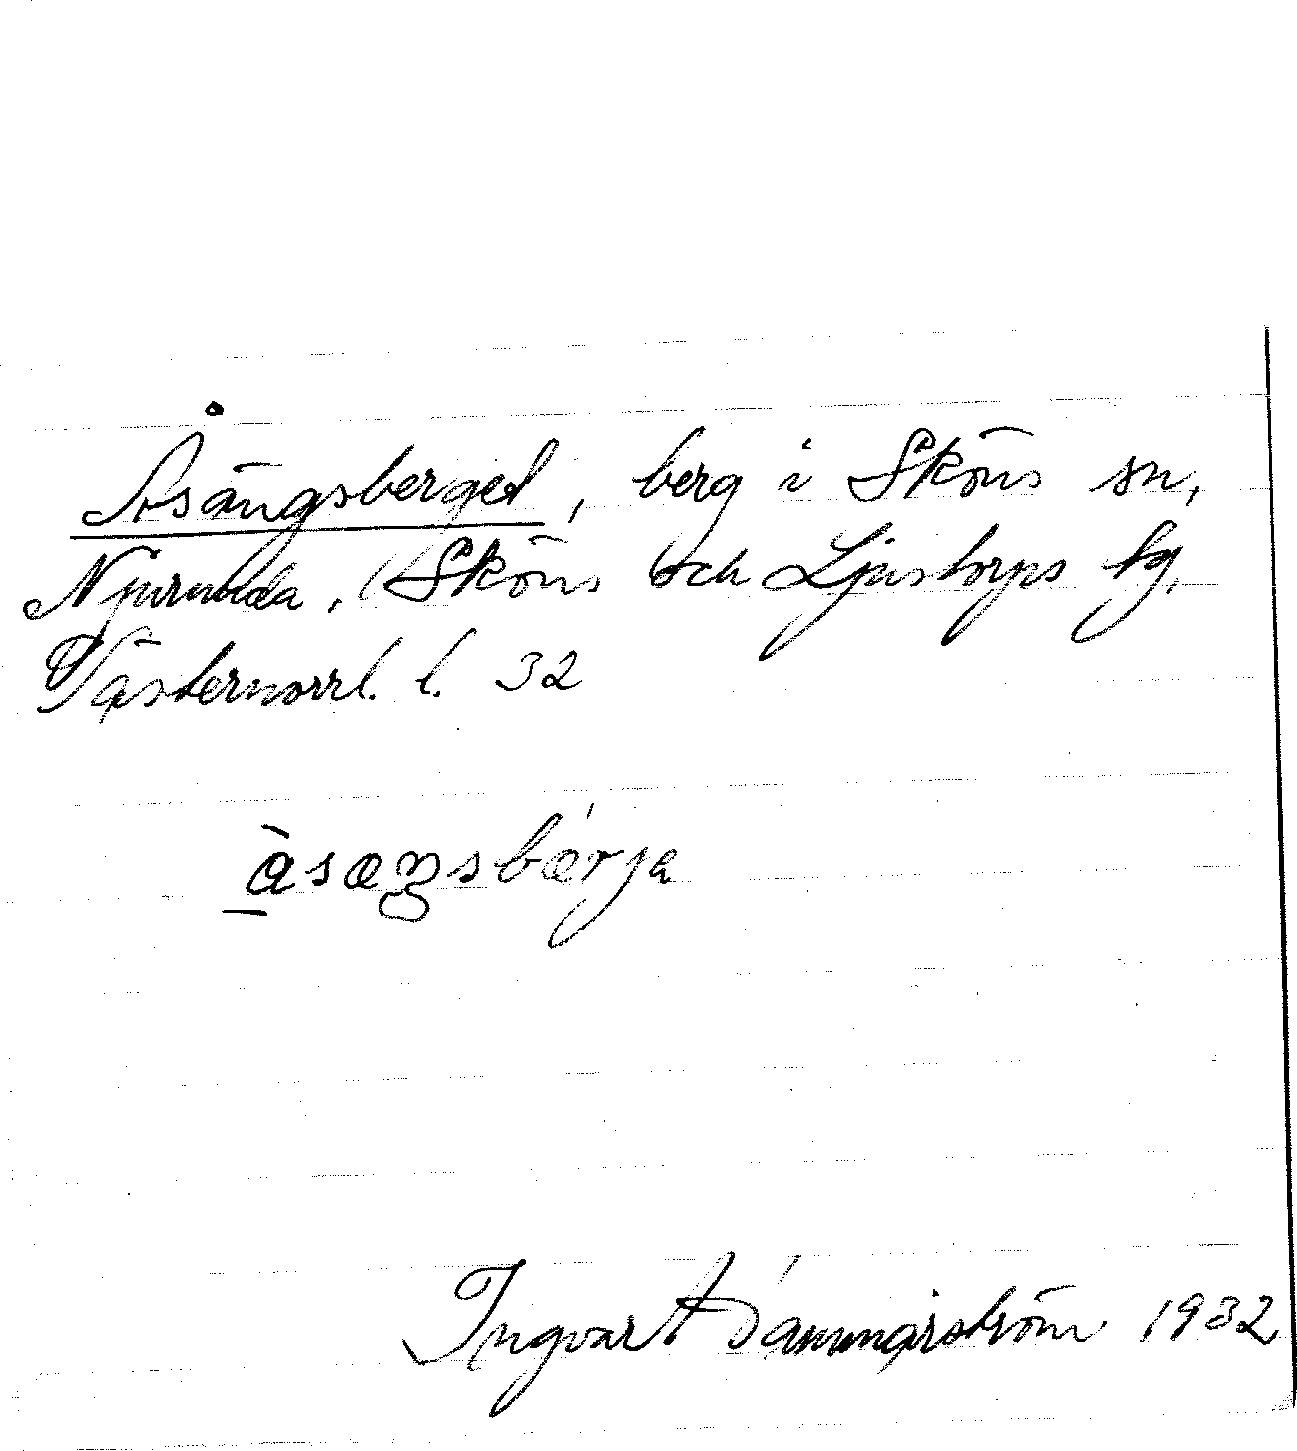 Åsängsberget, berg i Sköns sn,
Njurunda, Sköns och Ljustorps tg,
Västernorrl. l. 32
àsæŋsbær̍ja
Ingvar Hammarström 1932